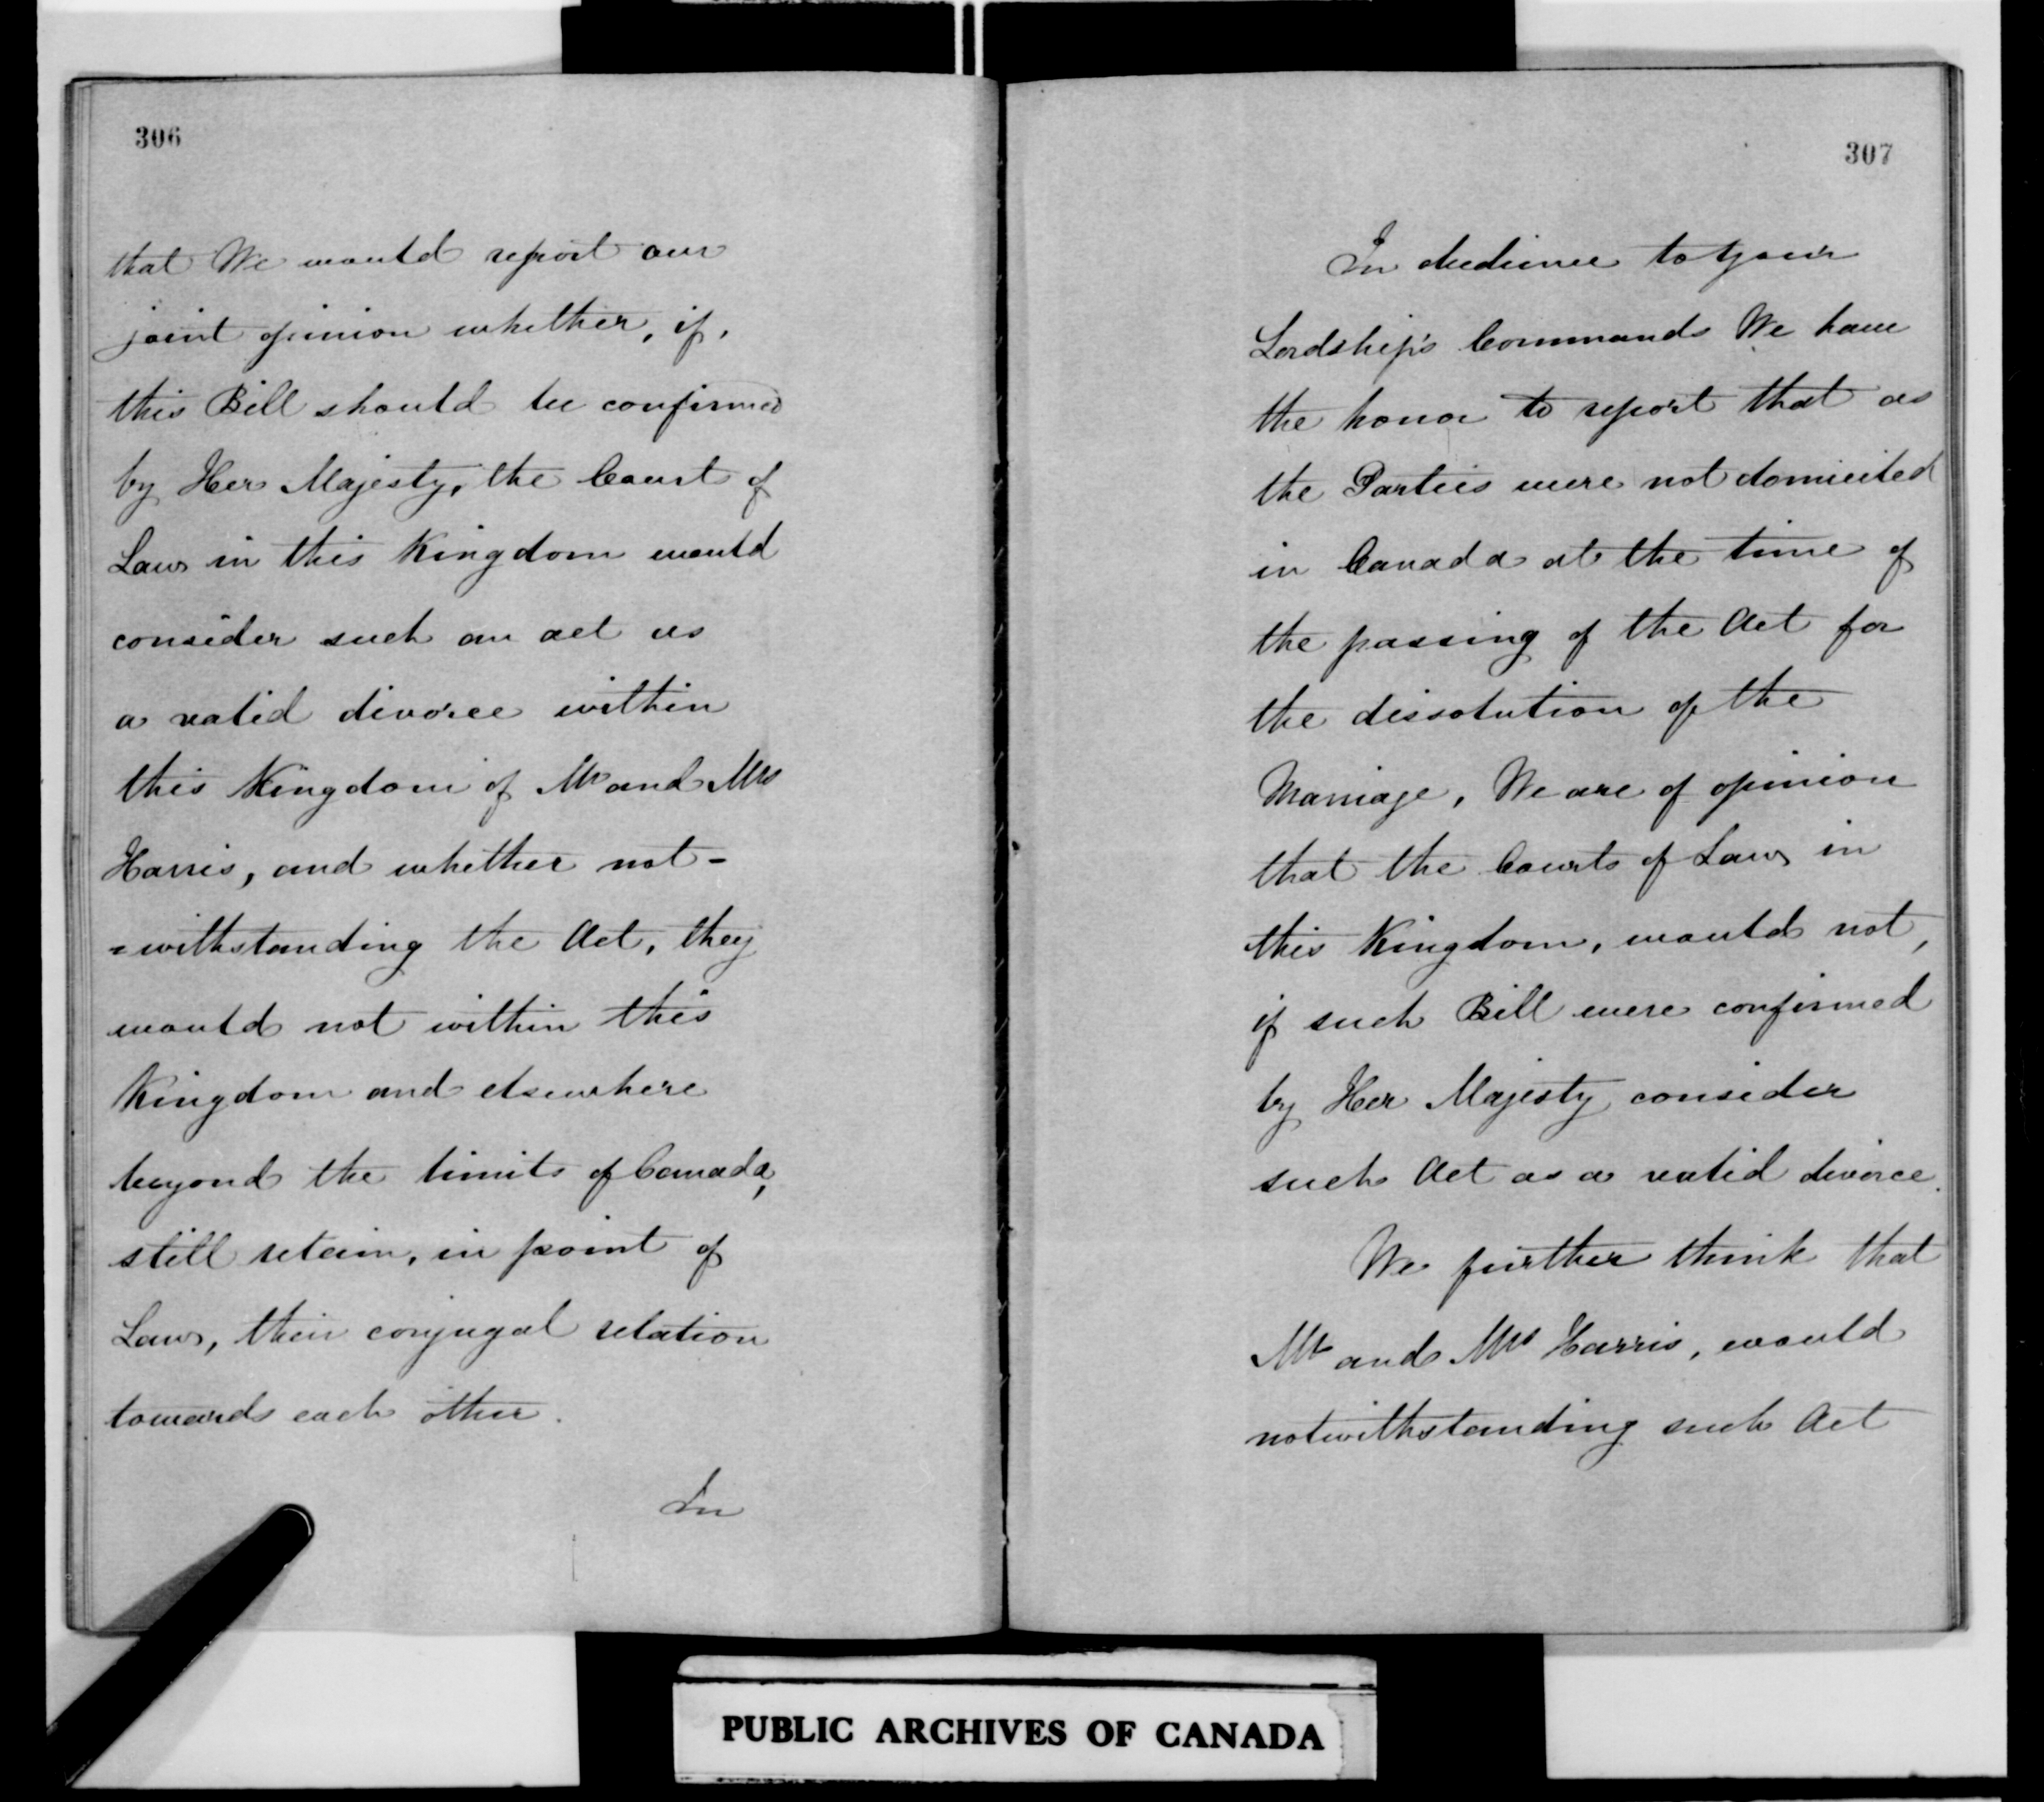 306
that We would report our
joint opinion whether, if,
this Bill should be confirmed
by Her Majesty, the Court of
Law in this Kingdom would
consider such an act as
a valid divorce within
this Kingdom of Mr and Mrs
Harris, and whether not-
=withstanding the Act, they
would not within this
Kingdom and elsewhere
beyond the limits of Canada,
still retain, in point of
Law, their conjugal relation
towards each other.
In
307
In obedience to Your
Lordship's Commands We have
the honor to report that as
the Parties were not domiciled
in Canada at the time of
the passing of the Act for
the dissolution of the
Marriage, We are of opinion
that the Courts of Law in
this Kingdom, would not,
if such Bill were confirmed
by Her Majesty consider
such Act as a valid divorce.
We further think that
Mr and Mrs Harris, would
notwithstanding such Act
PUBLIC ARCHIVES OF CANADA